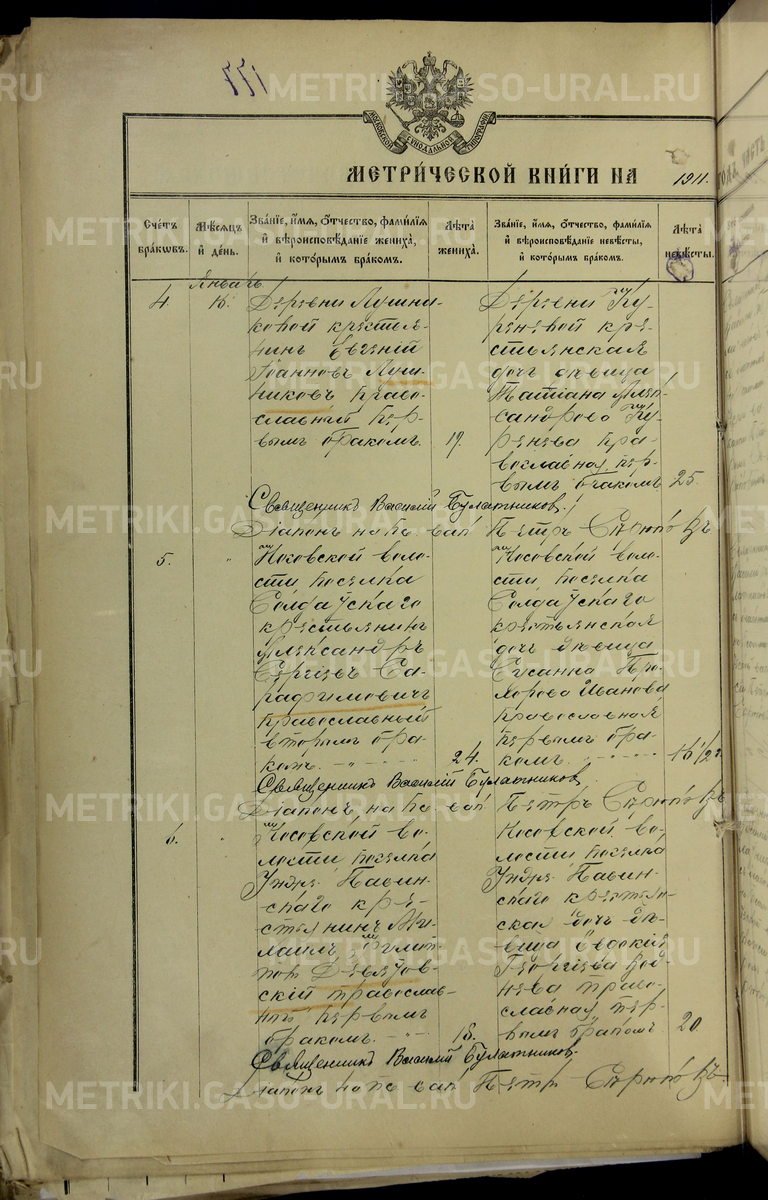 177
МОСКОВСКОЙ СУНОДАЛЬНОЙ ТИПОГРАФІИ
МЕТРИ́ЧЕСКОЙ КНИ́ГИ НА 1911.
Сче́тъ бра́кωвъ.
Мѣ́сяцъ и҆ де́нь.
Зва́нїе, и҆́мя, ѻ҆́тчество, фами́лїя
и҆ вѣроисповѣ́данїе жениха̀,
и҆ кото́рымъ бра́комъ.
Лѣ́та жениха̀.
Зва́нїе, и҆́мя, ѻ҆́тчество, фами́лїя
и҆ вѣроисповѣ́данїе невѣ́сты,
и҆ кото́рымъ бра́комъ.
Лѣ́та невѣ́сты.
Январь
4.
16.
Деревни Лушни-
ковой крестья-
нинъ Евгеній
Іоанновъ Луш-
никовъ право-
славный пер-
вымъ бракомъ.
19.
Деревни Ку-
реневой кре-
стьянская
дочь дѣвица
Татіана Алек-
сандрова Ку-
ренева пра-
вославная, пер-
вымъ бракомъ
25.
Священникъ Василій Булатниковъ.
Діаконъ на пс. вак. Петръ
5.
"
Носовской воло-
сти поселка
крестьянинъ
Александръ
Сергіевъ Са-
рафимовичъ
православный
вторымъ бра-
комъ.
24.
Носовской воло-
сти поселка
крестьянская
дочь дѣвица
Сусанна Про-
хорова Иванова
православная
первымъ бра-
комъ.
16 1/2
Священникъ Василій Булатниковъ.
Діаконъ на пс. вак. Петръ
6.
"
Носовской во-
лости поселка
Павин-
скаго кре-
стьянинъ Ми-
хаилъ
скій православ-
ный первымъ
бракомъ.
18.
Носовской во-
лости поселка
Павин-
скаго крестьян-
ская дочь дѣ-
вица Евдокія
Георгіева
нева право-
славная, пер-
вымъ бракомъ
20.
Священникъ Василій Булатниковъ.
Діаконъ на пс. вак. Петръ
METRIKI.GASO-URAL.RU